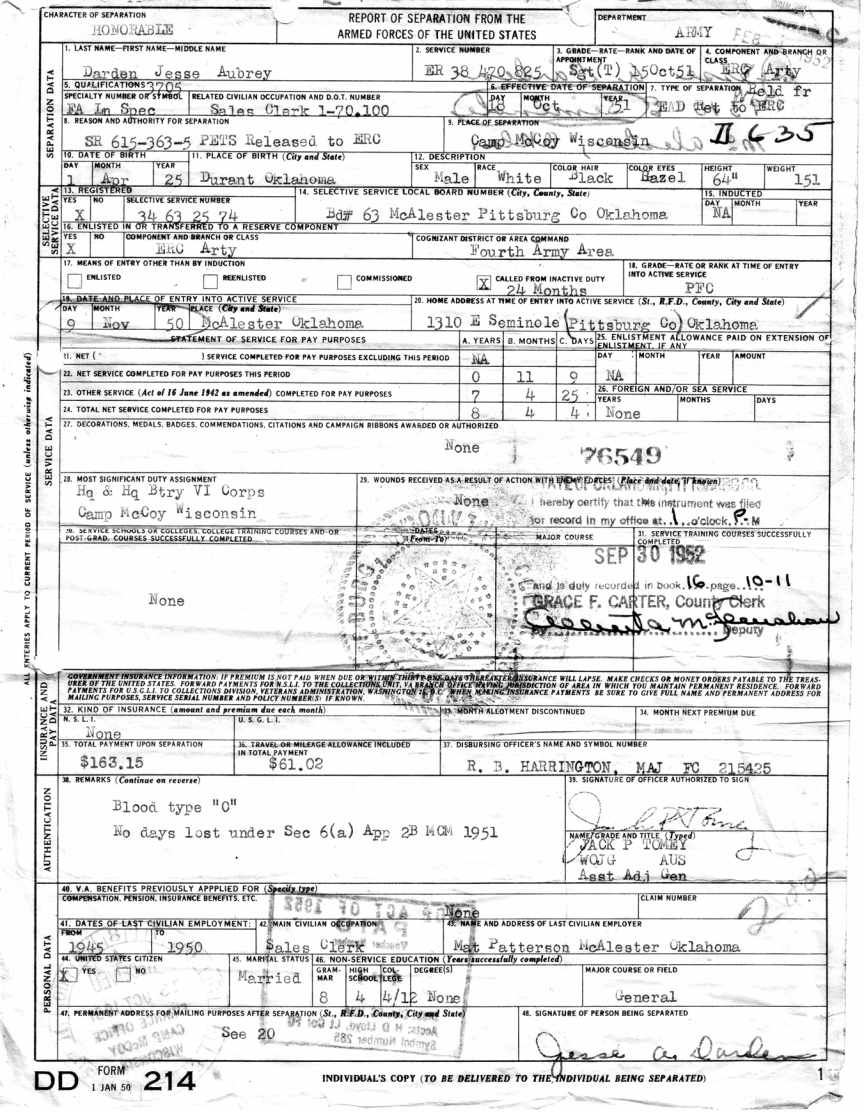 CHARACTER OF SEPARATION
HONORABLE
REPORT OF SEPARATION FROM THE
ARMED FORCES OF THE UNITED STATES
DEPARTMENT
ARMY
FEB
1952
SEPARATION DATA
1. LAST NAME—FIRST NAME—MIDDLE NAME
Darden Jesse Aubrey
2. SERVICE NUMBER
ER 38 420 825
3. GRADE—RATE—RANK AND DATE OF APPOINTMENT
Sgt(T) 15Oct51
4. COMPONENT AND BRANCH OR CLASS
ERC Arty
5. QUALIFICATIONS 3705
SPECIALTY NUMBER OR SYMBOL
FA Ln Spec
RELATED CIVILIAN OCCUPATION AND D.O.T. NUMBER
Sales Clerk 1-70.100
6. EFFECTIVE DATE OF SEPARATION
DAY MONTH YEAR
18 Oct 51
7. TYPE OF SEPARATION Reld fr
EAD Ret to ERC
8. REASON AND AUTHORITY FOR SEPARATION
SR 615-363-5 PETS Released to ERC
9. PLACE OF SEPARATION
Camp McCoy Wisconsin
II 635
10. DATE OF BIRTH
DAY MONTH YEAR
1 Apr 25
11. PLACE OF BIRTH (City and State)
Durant Oklahoma
12. DESCRIPTION
SEX RACE COLOR HAIR COLOR EYES HEIGHT WEIGHT
Male White Black Hazel 64" 151
SELECTIVE SERVICE DATA
13. REGISTERED
YES NO SELECTIVE SERVICE NUMBER
X 34 63 25 74
14. SELECTIVE SERVICE LOCAL BOARD NUMBER (City, County, State)
Bd# 63 McAlester Pittsburg Co Oklahoma
15. INDUCTED
DAY MONTH YEAR
NA
16. ENLISTED IN OR TRANSFERRED TO A RESERVE COMPONENT
YES NO COMPONENT AND BRANCH OR CLASS
X ERC Arty
COGNIZANT DISTRICT OR AREA COMMAND
Fourth Army Area
ALL ENTRIES APPLY TO CURRENT PERIOD OF SERVICE (unless otherwise indicated)
SERVICE DATA
17. MEANS OF ENTRY OTHER THAN BY INDUCTION
ENLISTED REENLISTED COMMISSIONED X CALLED FROM INACTIVE DUTY
24 Months
18. GRADE—RATE OR RANK AT TIME OF ENTRY INTO ACTIVE SERVICE
PFC
19. DATE AND PLACE OF ENTRY INTO ACTIVE SERVICE
DAY MONTH YEAR PLACE (City and State)
9 Nov 50 McAlester Oklahoma
20. HOME ADDRESS AT TIME OF ENTRY INTO ACTIVE SERVICE (St., R.F.D., County, City and State)
1310 E Seminole (Pittsburg Co) Oklahoma
STATEMENT OF SERVICE FOR PAY PURPOSES
A. YEARS B. MONTHS C. DAYS
11. NET ( ) SERVICE COMPLETED FOR PAY PURPOSES EXCLUDING THIS PERIOD
NA
22. NET SERVICE COMPLETED FOR PAY PURPOSES THIS PERIOD
0 11 9
23. OTHER SERVICE (Act of 16 June 1942 as amended) COMPLETED FOR PAY PURPOSES
7 4 25
24. TOTAL NET SERVICE COMPLETED FOR PAY PURPOSES
8 4 4
25. ENLISTMENT ALLOWANCE PAID ON EXTENSION OF ENLISTMENT, IF ANY
DAY MONTH YEAR AMOUNT
NA
26. FOREIGN AND/OR SEA SERVICE
YEARS MONTHS DAYS
None
27. DECORATIONS, MEDALS, BADGES, COMMENDATIONS, CITATIONS AND CAMPAIGN RIBBONS AWARDED OR AUTHORIZED
None
76549
28. MOST SIGNIFICANT DUTY ASSIGNMENT
Hq & Hq Btry VI Corps
Camp McCoy Wisconsin
29. WOUNDS RECEIVED AS A RESULT OF ACTION WITH ENEMY FORCES (Place and date, if known)
None
I hereby certify that this instrument was filed
for record in my office at 1 o'clock P. M
30. SERVICE SCHOOLS OR COLLEGES, COLLEGE TRAINING COURSES AND/OR POST-GRAD. COURSES SUCCESSFULLY COMPLETED
None
DATES (From-To)
MAJOR COURSE
31. SERVICE TRAINING COURSES SUCCESSFULLY COMPLETED
SEP 30 1952
and is duly recorded in book 16 page 10-11
GRACE F. CARTER, County Clerk
By Deputy
INSURANCE AND PAY DATA
GOVERNMENT INSURANCE INFORMATION: IF PREMIUM IS NOT PAID WHEN DUE OR WITHIN THIRTY-ONE DAYS THEREAFTER, INSURANCE WILL LAPSE. MAKE CHECKS OR MONEY ORDERS PAYABLE TO THE TREASURER OF THE UNITED STATES. FORWARD PAYMENTS FOR N.S.L.I. TO THE COLLECTIONS UNIT, VA BRANCH OFFICE HAVING JURISDICTION OF AREA IN WHICH YOU MAINTAIN PERMANENT RESIDENCE. FORWARD PAYMENTS FOR U.S.G.L.I. TO COLLECTIONS DIVISION, VETERANS ADMINISTRATION, WASHINGTON 25, D.C. WHEN MAKING INSURANCE PAYMENTS BE SURE TO GIVE FULL NAME AND PERMANENT ADDRESS FOR MAILING PURPOSES, SERVICE SERIAL NUMBER AND POLICY NUMBER(S) IF KNOWN.
32. KIND OF INSURANCE (amount and premium due each month)
N. S. L. I. U. S. G. L. I.
None
33. MONTH ALLOTMENT DISCONTINUED
34. MONTH NEXT PREMIUM DUE
35. TOTAL PAYMENT UPON SEPARATION
$163.15
36. TRAVEL OR MILEAGE ALLOWANCE INCLUDED IN TOTAL PAYMENT
$61.02
37. DISBURSING OFFICER'S NAME AND SYMBOL NUMBER
R. B. HARRINGTON, MAJ FC 215425
AUTHENTICATION
38. REMARKS (Continue on reverse)
Blood type "O"
No days lost under Sec 6(a) App 2B MCM 1951
39. SIGNATURE OF OFFICER AUTHORIZED TO SIGN
Jack P Tomey
NAME, GRADE AND TITLE (Typed)
JACK P TOMEY
WOJG AUS
Asst Adj Gen
PERSONAL DATA
40. V.A. BENEFITS PREVIOUSLY APPPLIED FOR (Specify type)
COMPENSATION, PENSION, INSURANCE BENEFITS, ETC.
None
CLAIM NUMBER
41. DATES OF LAST CIVILIAN EMPLOYMENT:
FROM TO
1945 1950
42. MAIN CIVILIAN OCCUPATION
Sales Clerk
43. NAME AND ADDRESS OF LAST CIVILIAN EMPLOYER
Mat Patterson McAlester Oklahoma
44. UNITED STATES CITIZEN
X YES NO
45. MARITAL STATUS
Married
46. NON-SERVICE EDUCATION (Years successfully completed)
GRAMMAR HIGH SCHOOL COLLEGE DEGREE(S)
8 4 4/12 None
MAJOR COURSE OR FIELD
General
47. PERMANENT ADDRESS FOR MAILING PURPOSES AFTER SEPARATION (St., R.F.D., County, City and State)
See 20
48. SIGNATURE OF PERSON BEING SEPARATED
Jesse A. Darden
DD FORM 1 JAN 50 214
INDIVIDUAL'S COPY (TO BE DELIVERED TO THE INDIVIDUAL BEING SEPARATED)
1